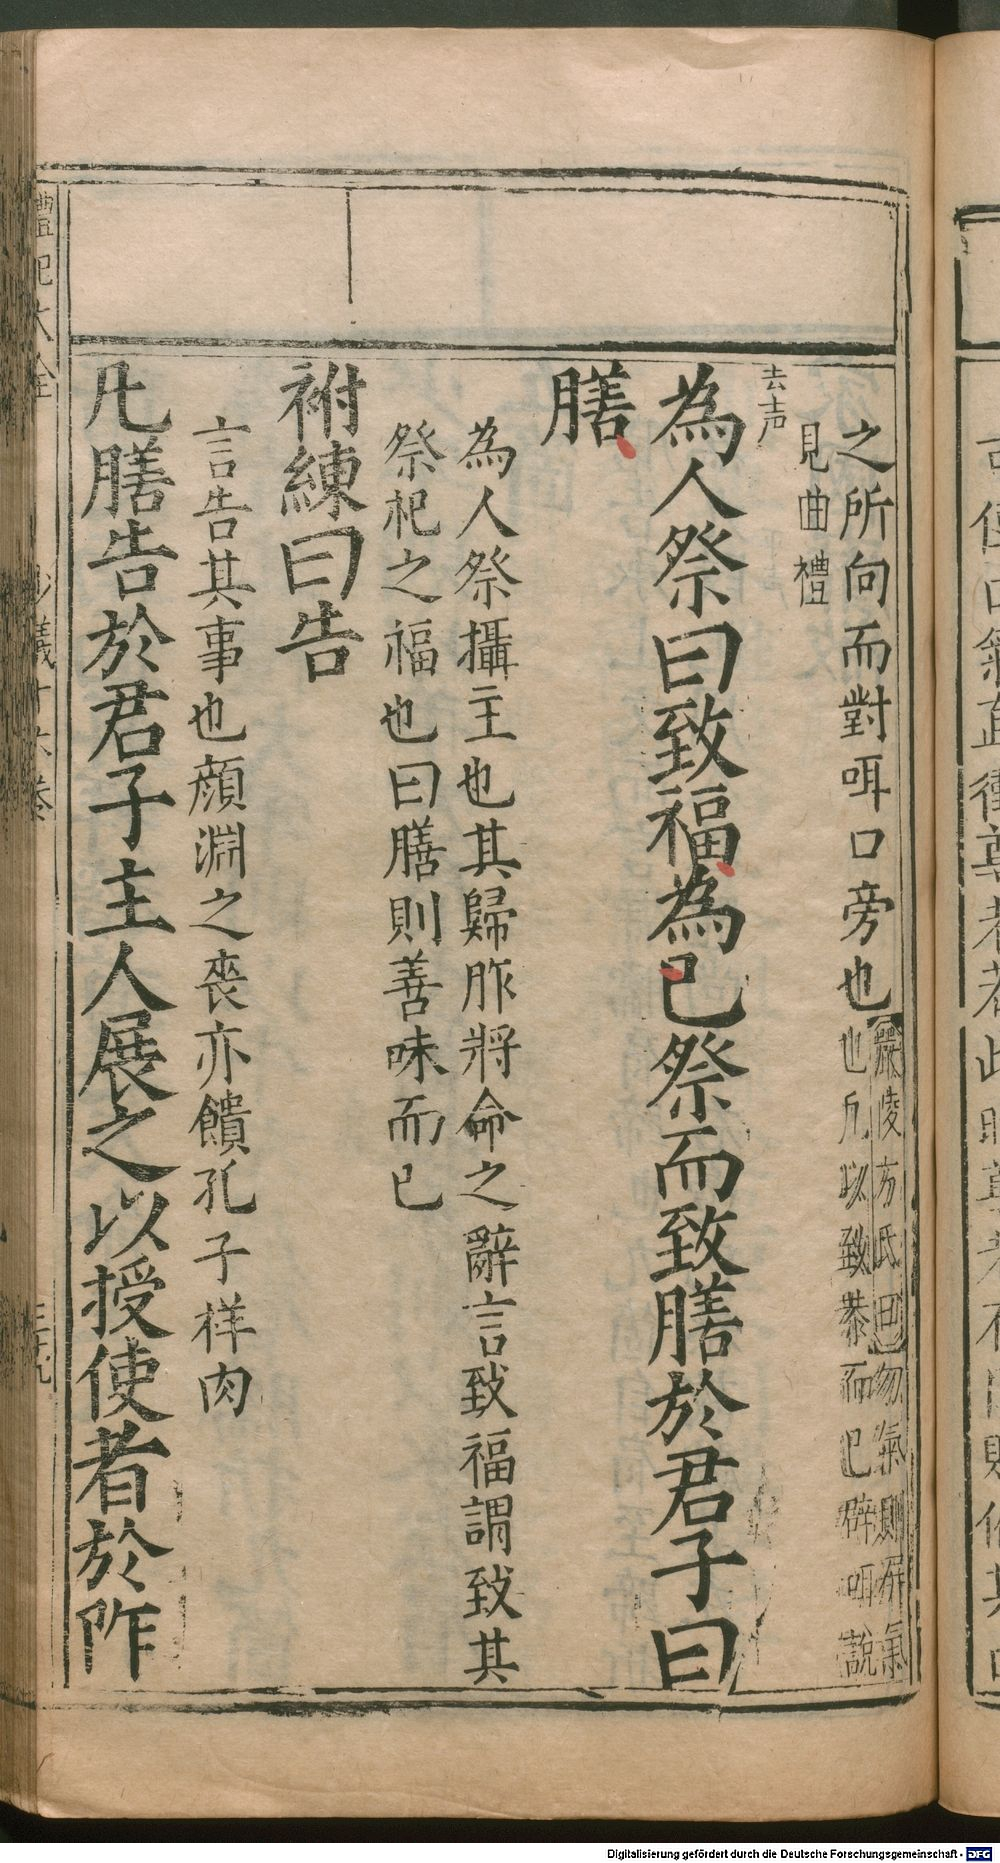 之所向而對咡口旁也【嚴陵方氏曰】勿氣則屏氣
也凡以致恭而已辟咡說
見曲禮
去声
為人祭曰致福為己祭而致膳於君子曰
膳
為人祭攝主也其歸胙將命之辭言致福謂致其
祭祀之福也曰膳則善味而已
祔練曰告
言告其事也顔淵之喪亦饋孔子祥肉
凡膳告於君子主人展之以授使者於阼
禮記大全 少儀十六卷 三十九
Digitalisierung gefördert durch die Deutsche Forschungsgemeinschaft - DFG